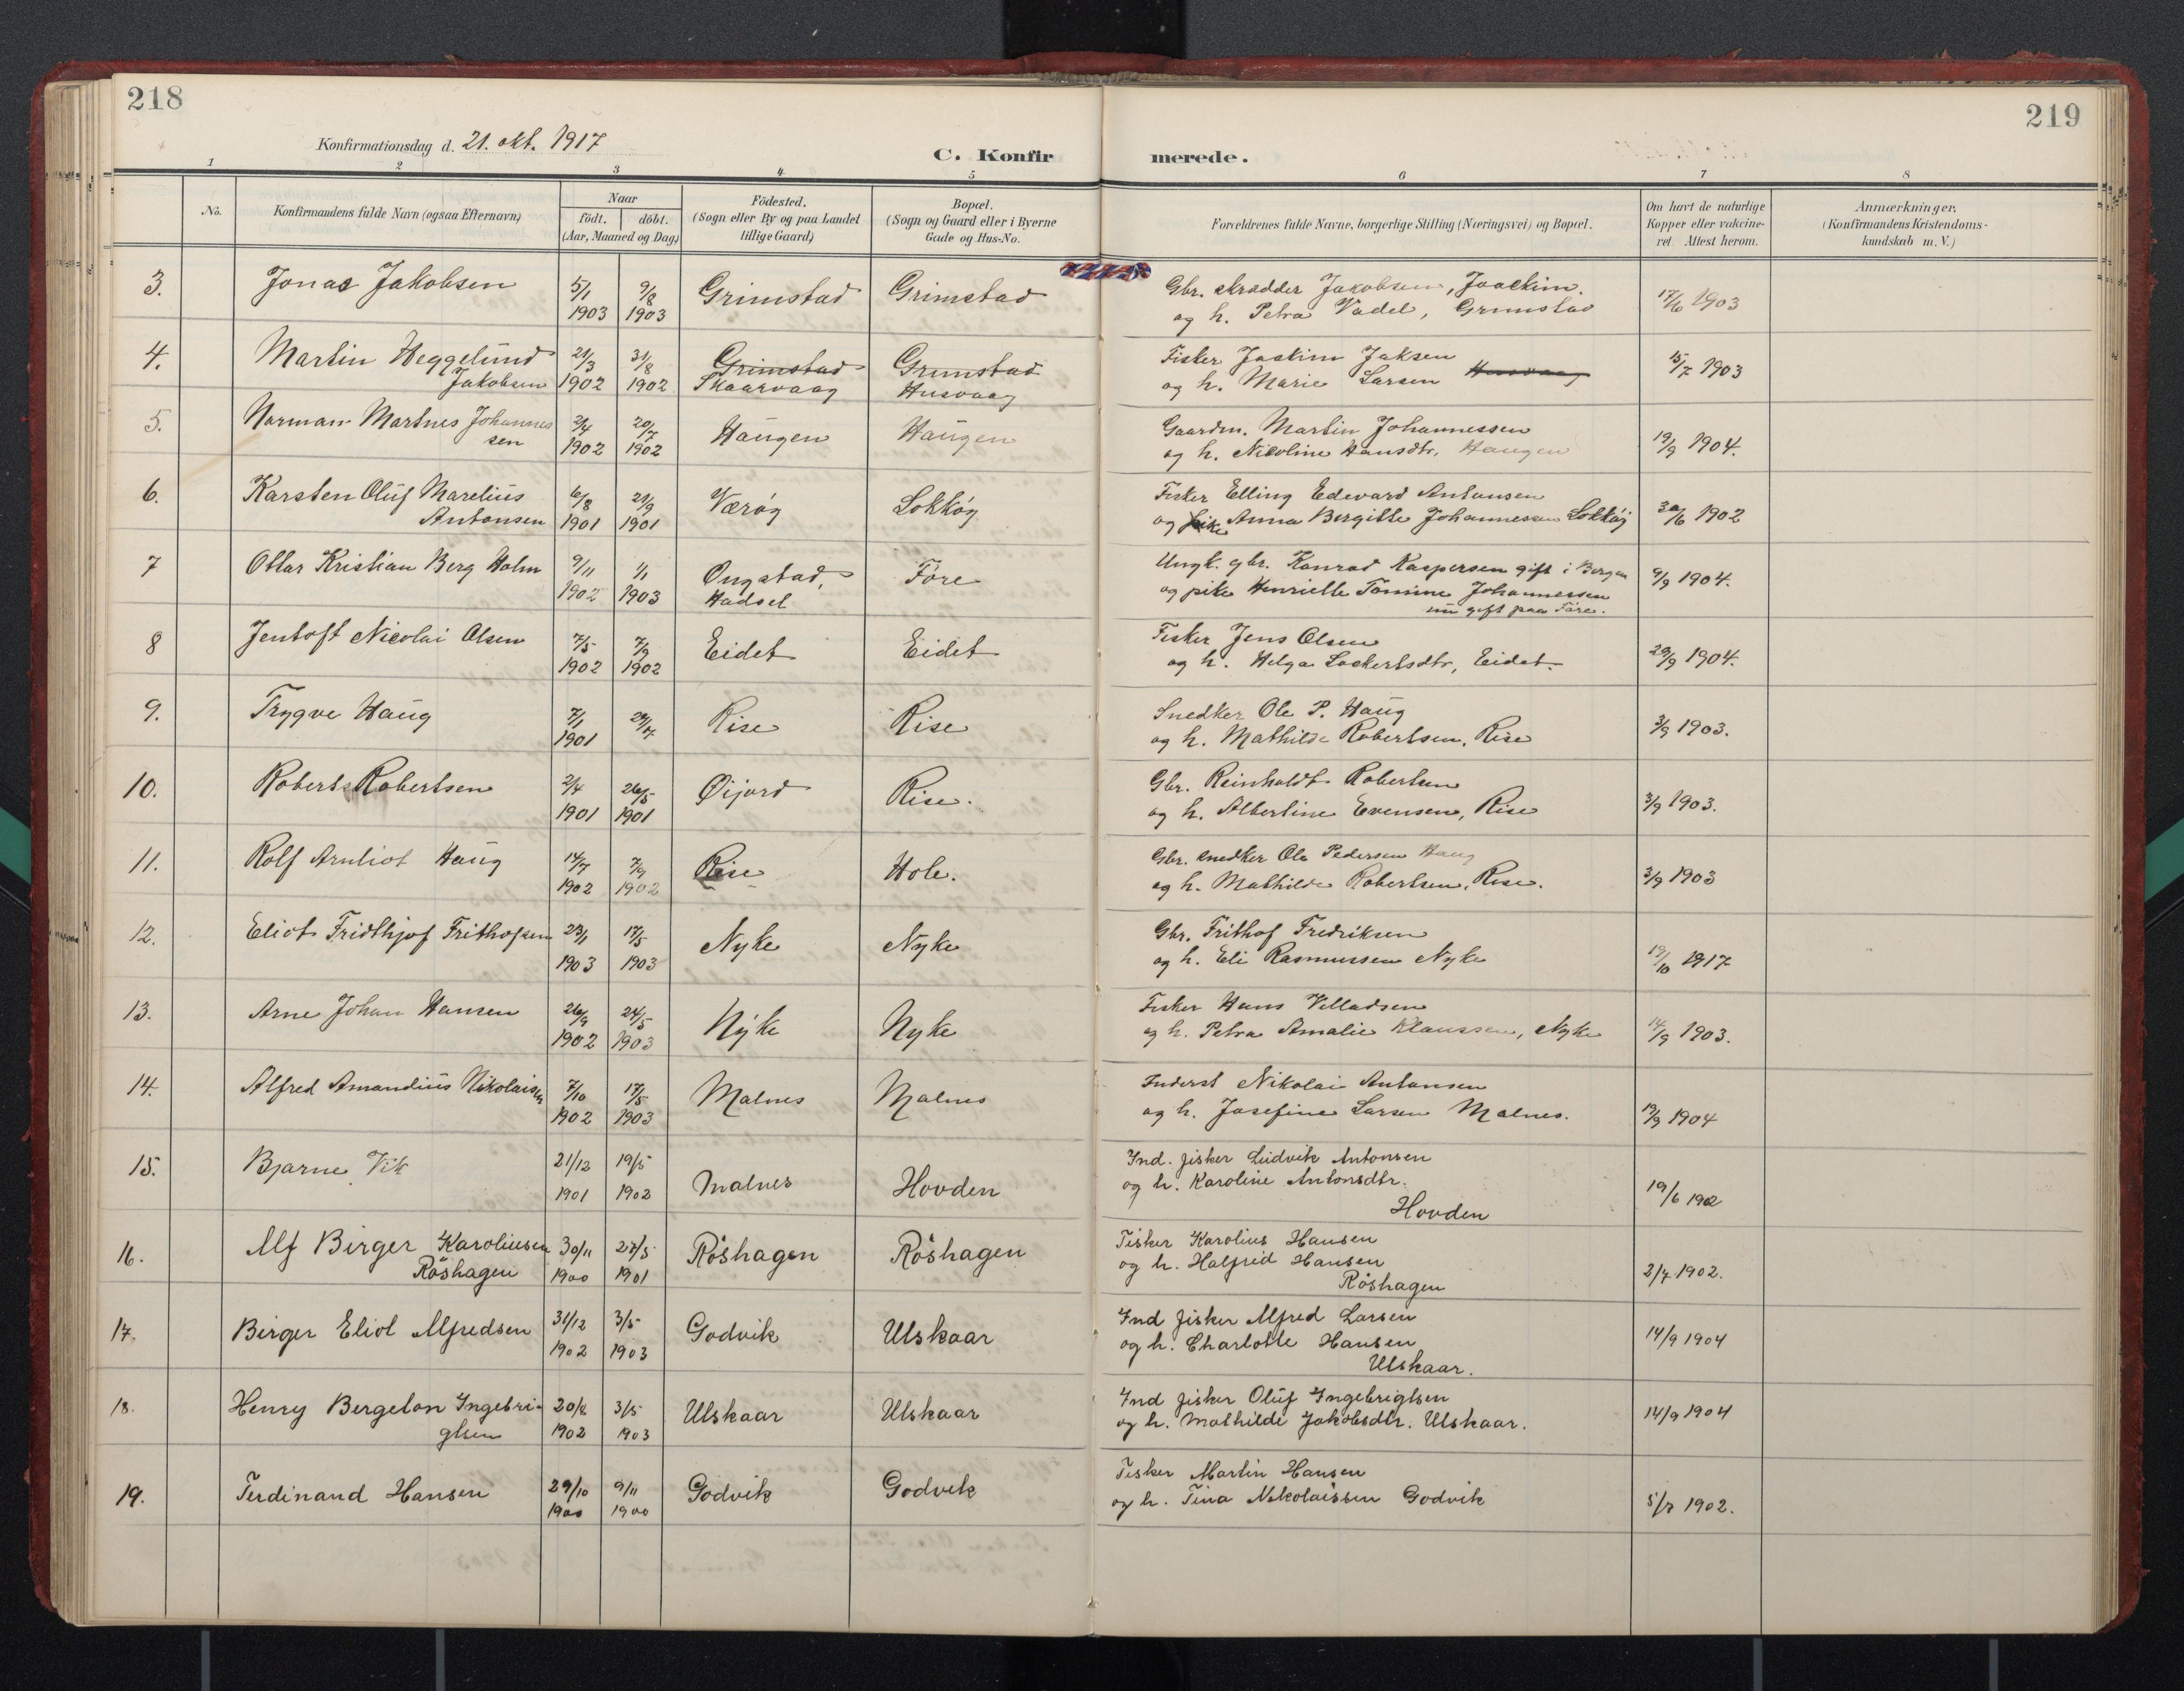 218
219
Konfirmationsdag d. 21. okt. 1917
C. Konfirmerede.
1 2 3 4 5 6 7 8
No.
Konfirmandens fulde Navn (ogsaa Efternavn)
Naar
födt. döbt.
(Aar, Maaned og Dag)
Födested.
(Sogn eller By og paa Landet
tillige Gaard)
Bopæl.
(Sogn og Gaard eller i Byerne
Gade og Hus-No.
Forældrenes fulde Navne, borgerlige Stilling (Næringsvei) og Bopæl.
Om havt de naturlige
Kopper eller vakcine-
ret Attest herom.
Anmærkninger,
(Konfirmandens Kristendoms-
kundskab m. V.)
3. Jonas Jakobsen 5/1 1903 9/8 1903 Grimstad Grimstad
Gbr. skrædder Jakobsen, Joackim.
og h. Petra Vadel, Grimstad
17/6 1903
4. Martin Heggelund Jakobsen 21/3 1902 31/8 1902 Grimstad Skaarvaag Grimstad Husvaag
Fisker Joakim Jaksen
og h. Marie Larsen Husvaag
15/7 1903
5. Norman Martnes Johannessen 2/4 1902 20/7 1902 Haugen Haugen
Gaardm. Martin Johannessen
og h. Nicoline Hansdtr. Haugen
19/9 1904.
6. Karsten Oluf Marelius Antonsen 6/8 1901 21/9 1901 Værøy Lokkøy
Fisker Elling Edevard Antonsen
og pike Anna Bergitte Johannessen Lokkøy
30/6 1902
7 Ottar Kristian Berg Holm 9/11 1902 1/1 1903 Ongstad, Hadsel Føre
Ungk. gbr. Konrad Kaspersen gift i Bergen
og pike Henriette Tomine Johannessen
nu gift paa Føre.
9/9 1904.
8 Jentoft Nicolai Olsen 7/5 1902 7/9 1902 Eidet Eidet
Fisker Jens Olsen
og h. Helga Lockertsdtr, Eidet.
29/9 1904.
9. Trygve Haug 7/1 1901 29/7 Rise Rise
Snedker Ole P. Haug
og h. Mathilde Robertsen, Rise
3/9 1903.
10. Robert Robertsen 2/4 1901 26/5 1901 Øijord Rise.
Gbr. Reinholdt Robertsen
og h. Albertine Evensen, Rise
3/9 1903.
11. Rolf Arnliot Haug 14/7 1902 7/9 1902 Rise Hole.
Gbr. snedker Ole Pedersen Haug
og h. Mathilde Robertsen, Rise.
3/9 1903
12. Eliot Fridthjof Frithofsen 23/1 1903 17/5 1903 Nyke Nyke
Gbr. Frithof Fredriksen
og h. Eli Rasmussen Nyke
19/10 1917
13. Arne Johan Hansen 26/9 1902 24/5 1903 Nyke Nyke
Fisker Hans Villadsen
og h. Petra Amalie Klaussen, Nyke
14/9 1903.
14. Alfred Amandius Nikolaisen 7/10 1902 17/5 1903 Malnes Malnes
Inderst Nikolai Antonsen
og h. Josefine Larsen Malnes.
19/9 1904
15. Bjarne Vik 21/12 1901 19/5 1902 Malnes Hovden
Ind. fisker Ludvik Antonsen
og h. Karoline Antonsdtr.
Hovden
19/6 1902
16. Alf Birger Karoliusen Röshagen 30/11 1900 27/5 1901 Röshagen Röshagen
Fisker Karolius Hansen
og h. Halfrid Hansen
Röshagen
2/7 1902.
17. Birger Eliot Alfredsen 31/12 1902 3/5 1903 Godvik Ulskaar
Ind fisker Alfred Larsen
og h. Charlotte Hansen
Ulskaar.
14/9 1904
18. Henry Bergeton Ingebrigtsen 20/8 1902 3/5 1903 Ulskaar Ulskaar
Ind fisker Oluf Ingebrigtsen
og h. Mathilde Jakobsdtr. Ulskaar.
14/9 1904
19. Ferdinand Hansen 29/10 1900 9/11 1900 Godvik Godvik
Fisker Martin Hansen
og h. Tina Nikolaissen Godvik
5/7 1902.